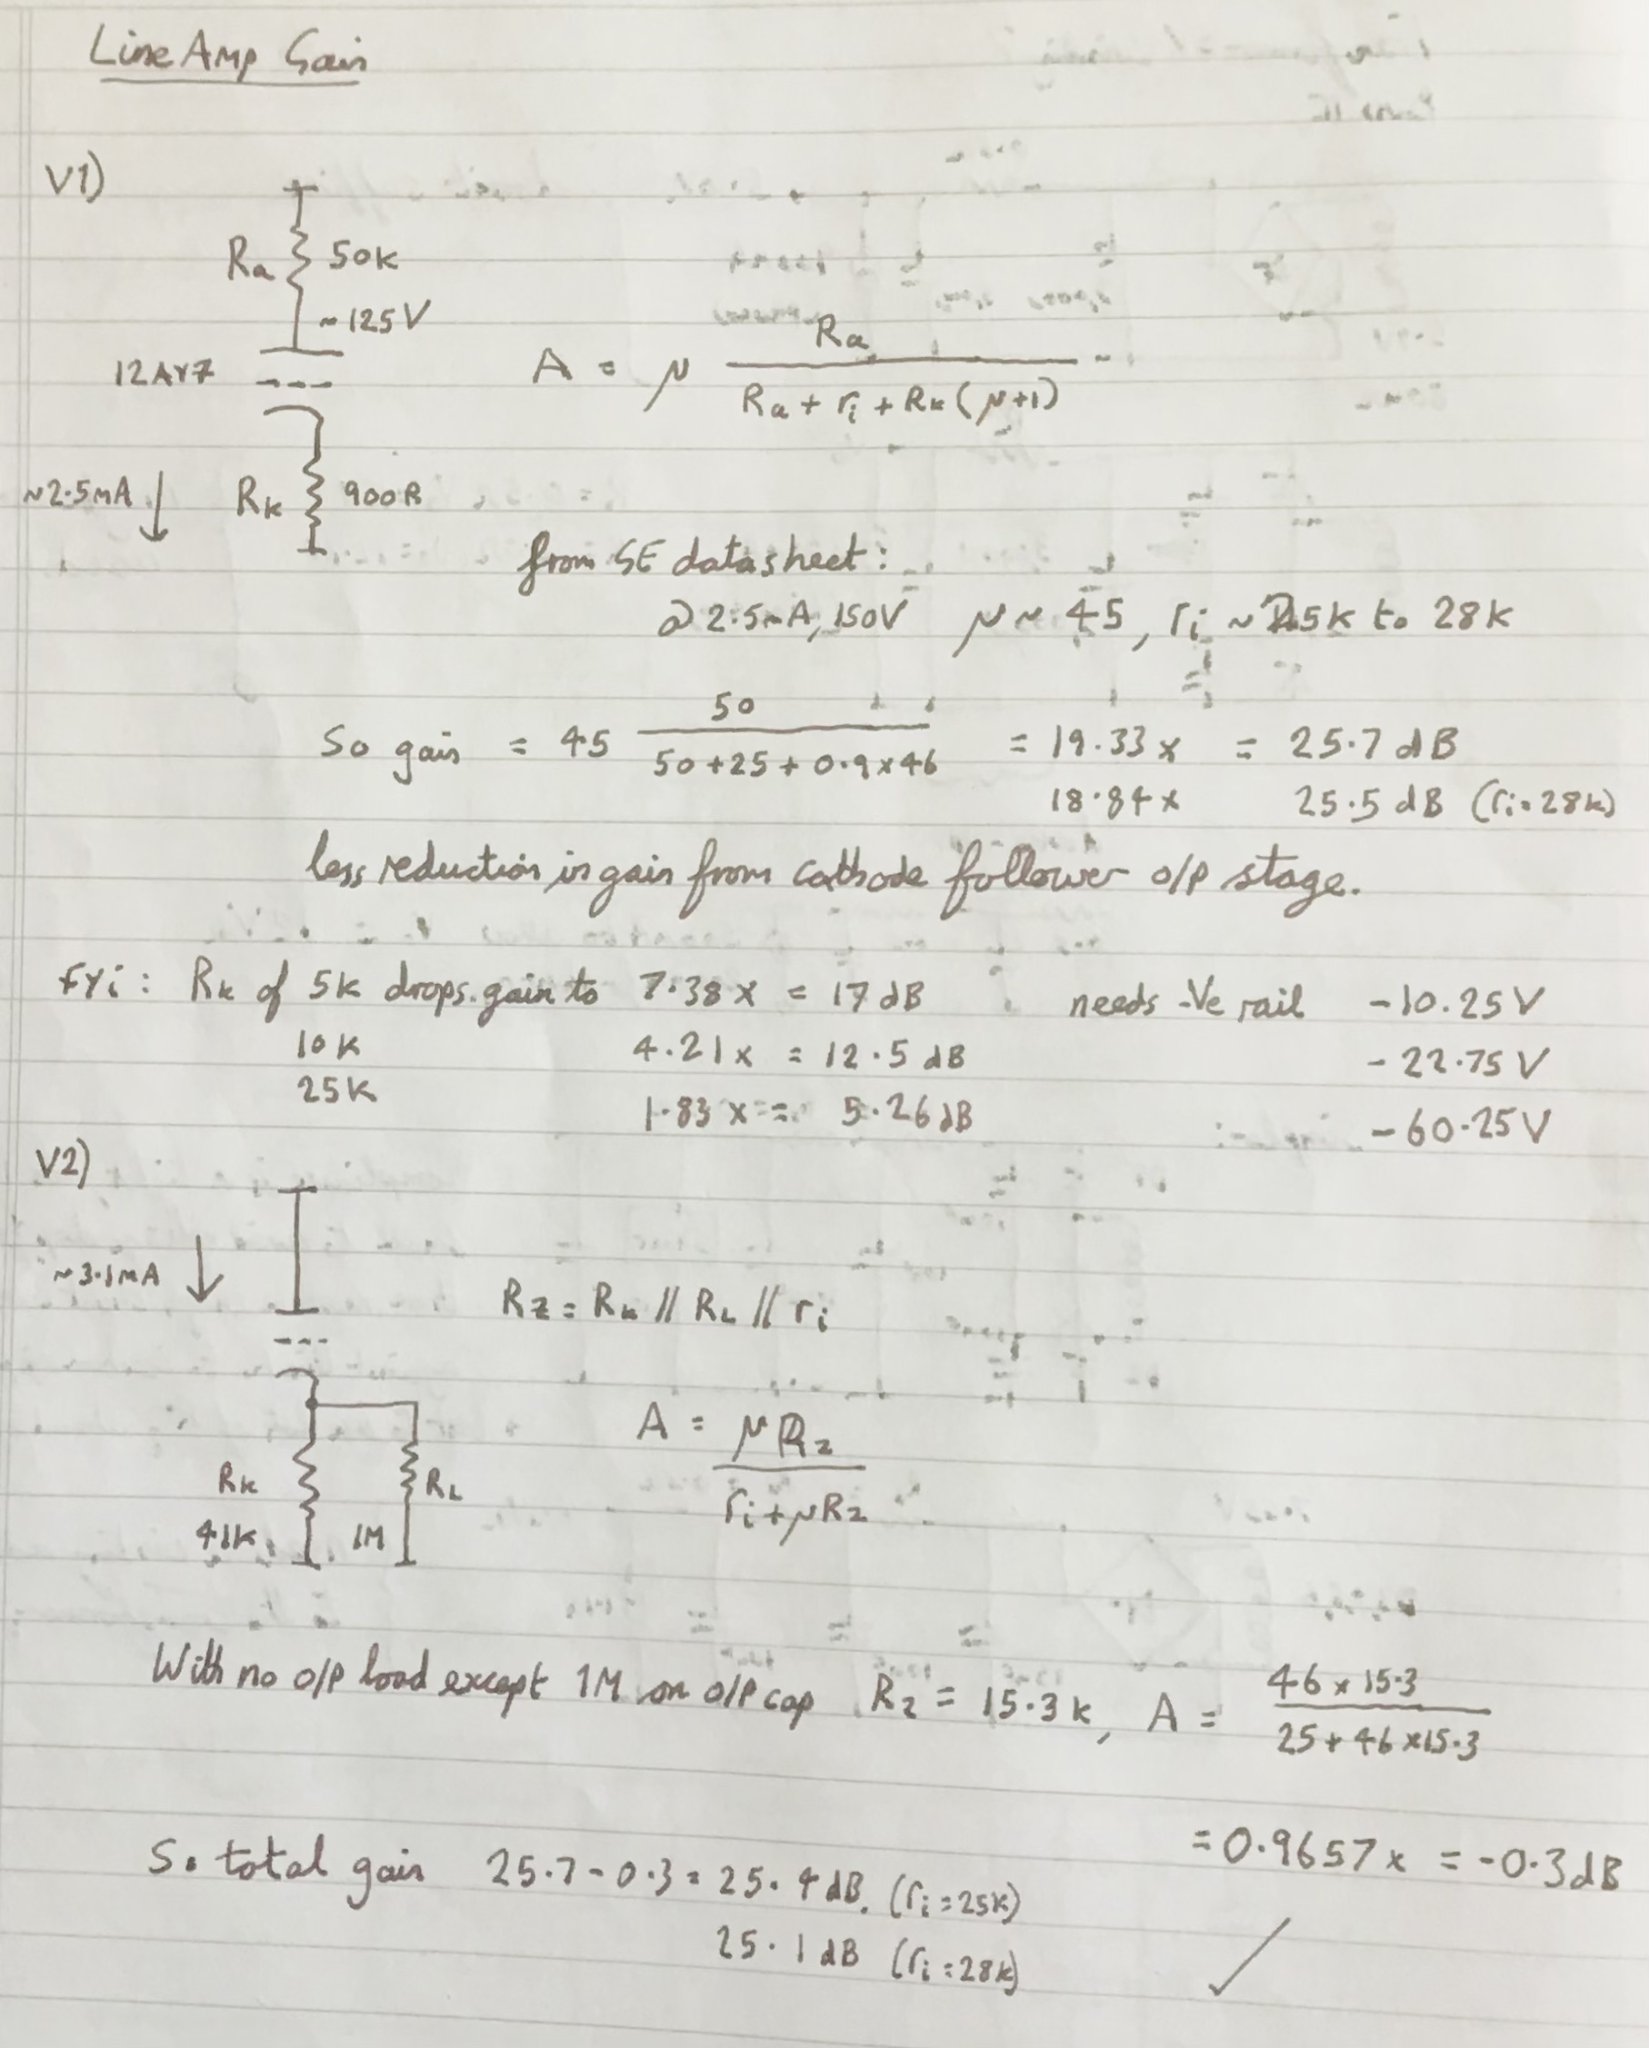 Line Amp Gain
V1)
Ra 50k
~125V
12AY7
A = μ Ra / Ra + ri + Rk (μ+1)
~2.5mA ↓ Rk 900R
from GE datasheet:
@ 2.5mA, 150V μ ~ 45, ri ~ 25k to 28k
So gain = 45 50 / 50+25+0.9×46 = 19.33x = 25.7 dB
18.84x 25.5 dB (ri=28k)
less reduction in gain from cathode follower o/p stage.
FYi: Rk of 5k drops gain to 7.38x = 17dB needs -Ve rail -10.25V
10k 4.21x = 12.5 dB -22.75V
25k 1.83x = 5.26dB -60.25V
V2)
~3.1mA ↓
Rz = Rk // RL // ri
A = μRz / ri+μRz
Rk RL
41k 1M
With no o/p load except 1M on o/p cap Rz = 15.3k, A = 46×15.3 / 25+46×15.3
= 0.9657x = -0.3dB
So total gain 25.7-0.3=25.4dB. (ri=25k)
25.1dB (ri=28k)
✓